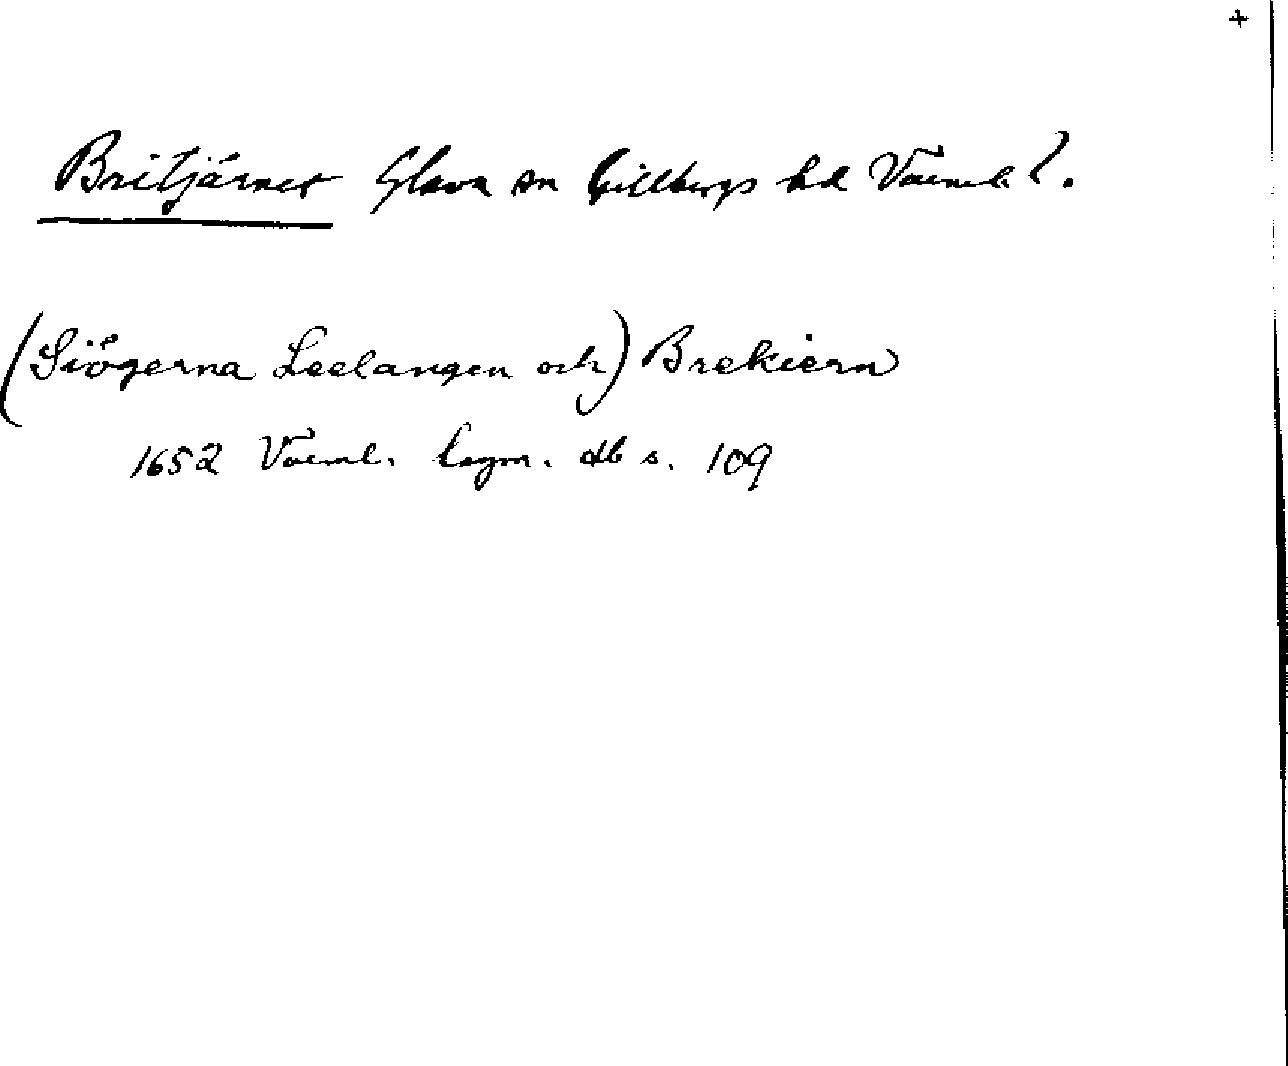 +
Britjärnet Glava sn Gillbergs hd Värml. l.
(Siögerna Leelangen och) Brekiern
1652 Värml. lagm. db s. 109